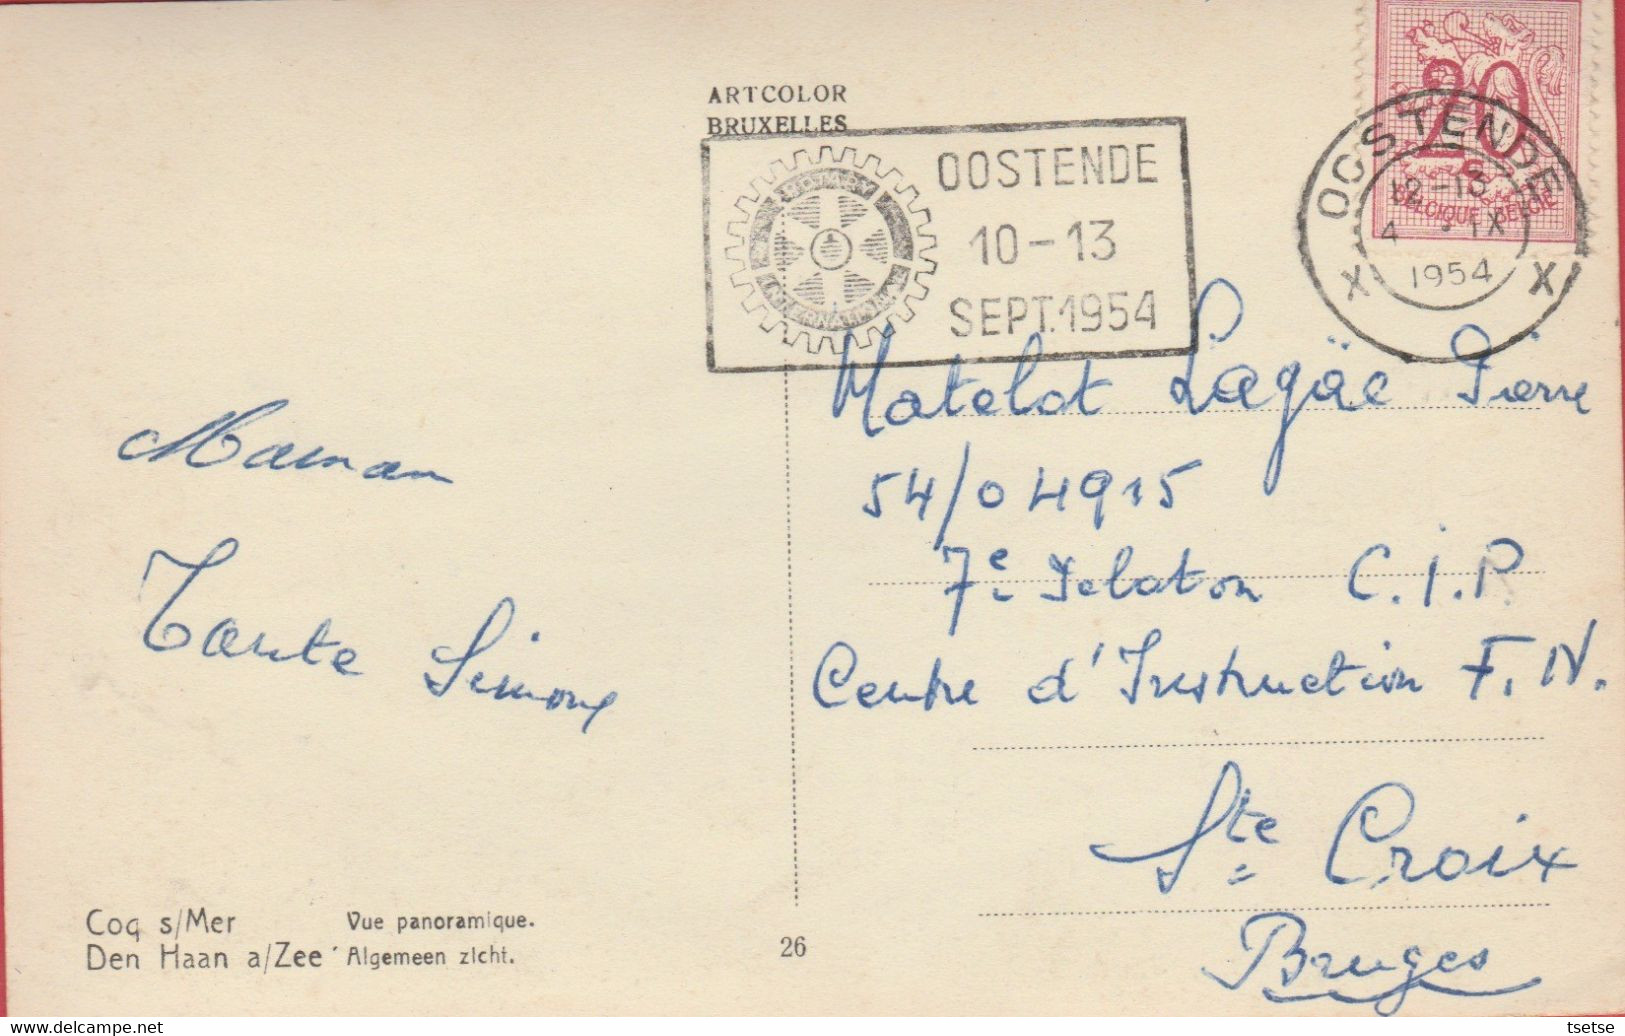 ARTCOLOR
BRUXELLES
20
BELGIQUE BELGIE
OOSTENDE
12-13
4 · IX
1954
X X
ROTARY
INTERNATIONAL
OOSTENDE
10-13
SEPT.1954
Maman
Tante Simone
Matelot Lagäe Pierre
54/04915
7e Peloton C.I.P.
Centre d'Instruction F.N.
Ste Croix
Bruges
Coq s/Mer Vue panoramique.
Den Haan a/Zee Algemeen zicht.
26
tsetse